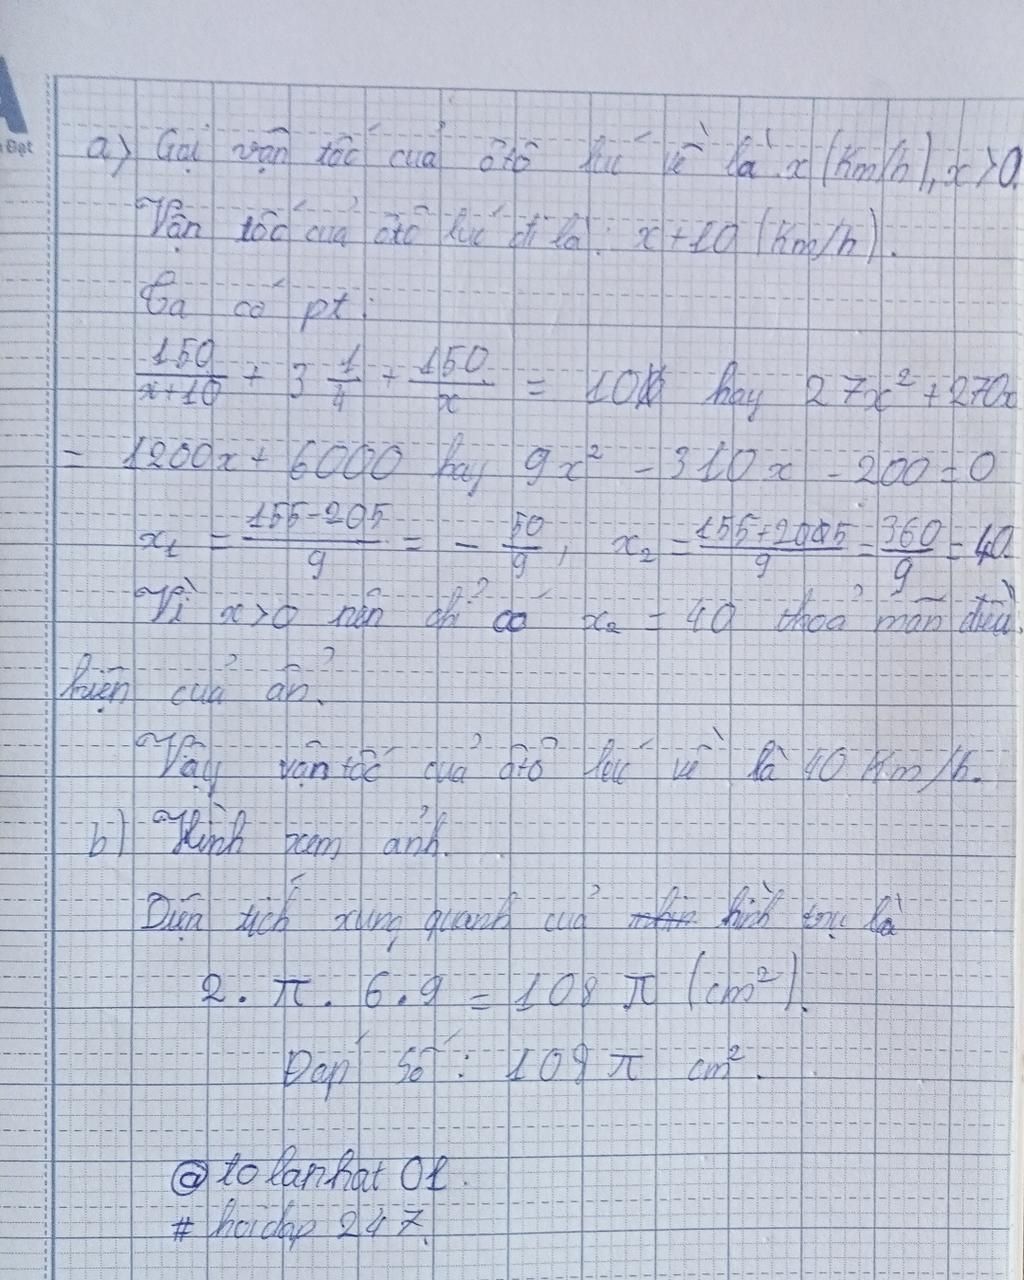 A
Đạt
a) Gọi vận tốc của ôtô lúc về là x (Km/h), x>0
Vận tốc của ôtô lúc đi là: x+10 (Km/h).
Ta có pt:
150/(x+10) + 3 1/4 + 150/x = 10 hay 27x² + 270x
= 1200x + 6000 hay 9x² - 310x - 200 = 0
x₁ = (155-205)/9 = - 50/9, x₂ = (155+205)/9 = 360/9 = 40
Vì x>0 nên chỉ có x₂ = 40 thoả mãn điều
kiện của ẩn.
Vậy vận tốc của ôtô lúc về là 40 Km/h.
b) Hình xem ảnh.
Diện tích xung quanh của hình trụ là
2. π. 6.9 = 108 π (cm²).
Đáp số: 108 π cm².
@tolanhat01.
# hoidap 247.